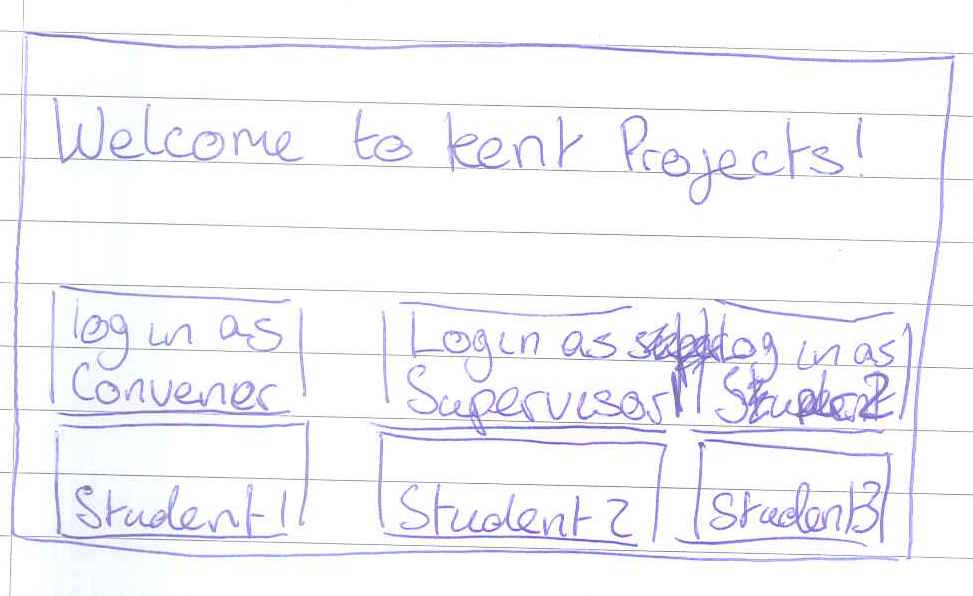 Welcome to kent Projects!
log in as
Convener
Login as
Supervisor
log in as
Student 2
Student 1
Student 2
Student 3